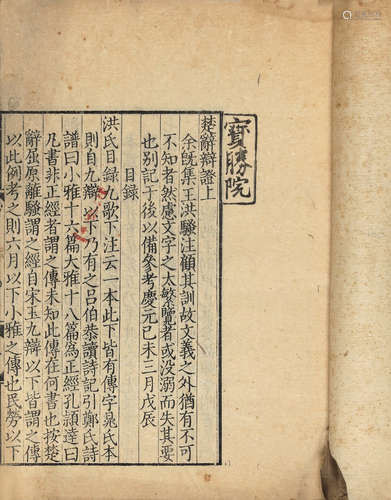 寶勝院
楚辭辯證上
余既集王洪騷注顧其訓故文義之外猶有不可
不知者然慮文字之太繁覽者或没溺而失其要
也别記于後以備參考慶元己未三月戊辰
目録
洪氏目録九歌下注云一本此下皆有傳字晁氏本
則自九辯以下乃有之吕伯恭讀詩記引鄭氏詩
譜曰小雅十六篇大雅十八篇為正經孔頴達曰
凡書非正經者謂之傳未知此傳在何書也按楚
辭屈原離騷謂之經自宋玉九辯以下皆謂之傳
以此例考之則六月以下小雅之傳也民勞以下